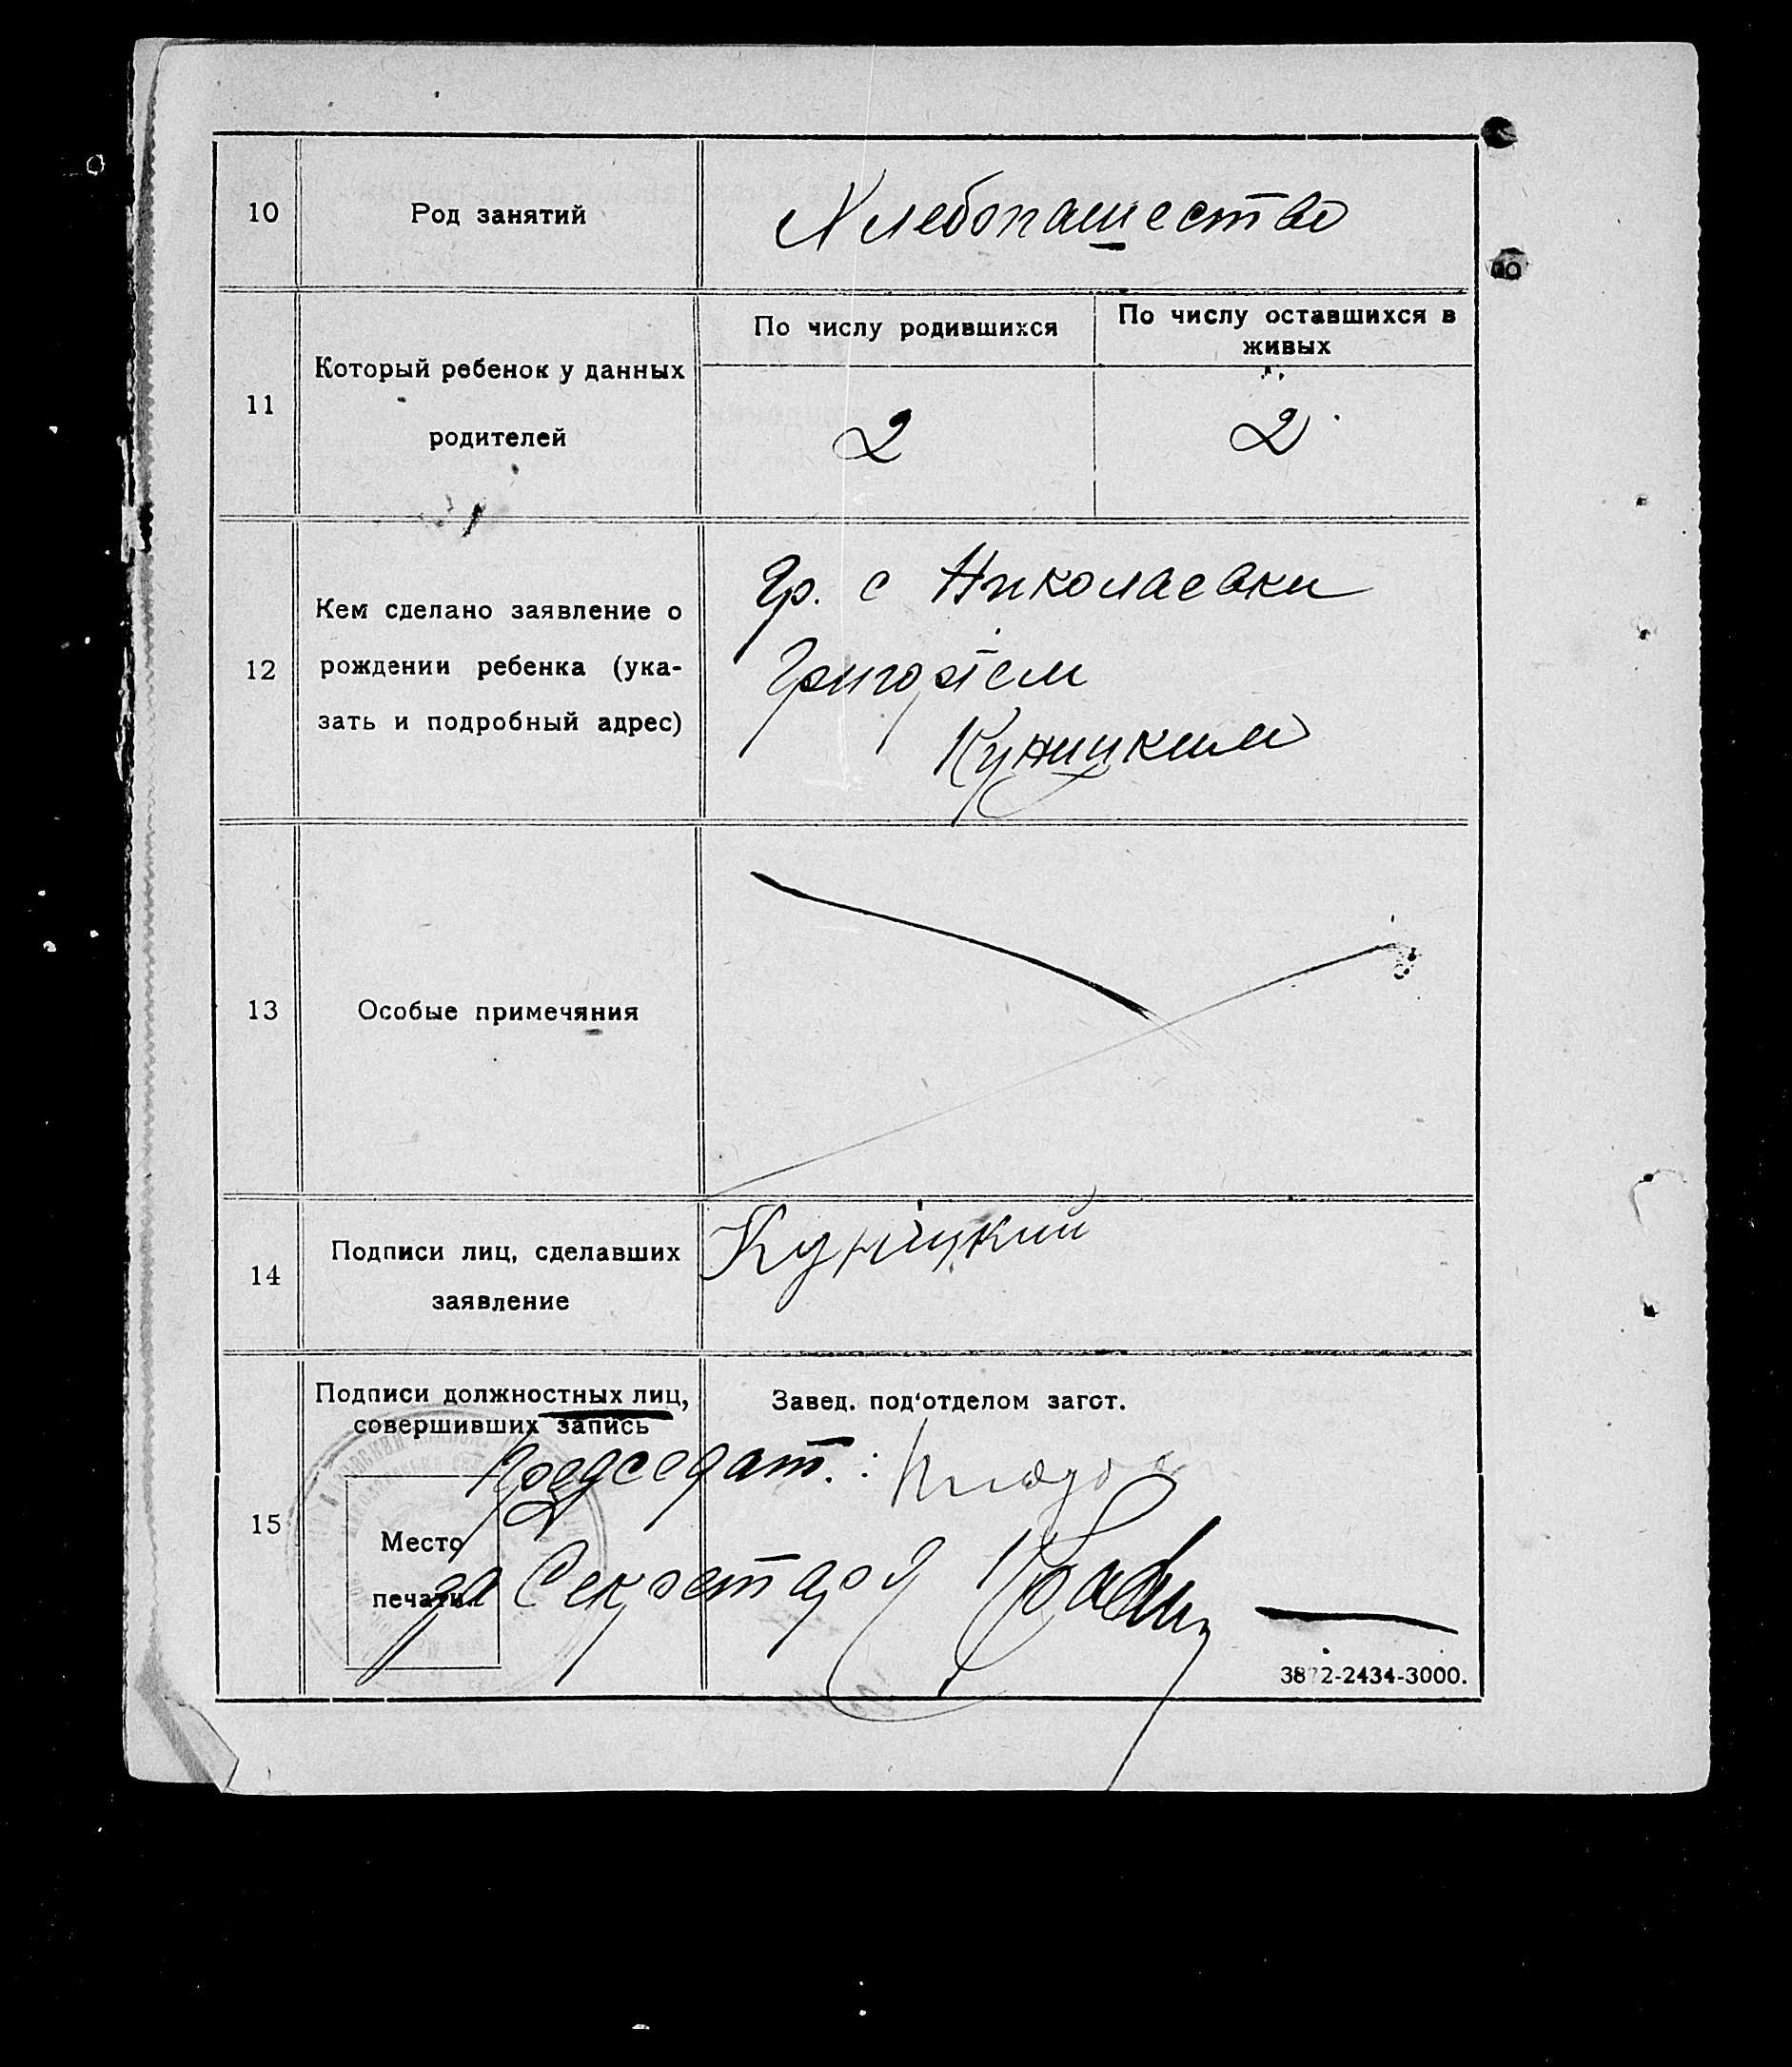 10
Род занятий
Хлебопашество
11
Который ребенок у данных
родителей
По числу родившихся
По числу оставшихся в
живых
2
2
12
Кем сделано заявление о
рождении ребенка (ука-
зать и подробный адрес)
Гр. с Николаевки
Григорiем
Куницким
13
Особые примечяния
14
Подписи лиц, сделавших
заявление
Куницкий
15
Подписи должностных лиц,
совершивших запись
Завед. под‘отделом загст.
Председат.:
Место
за Секретаря
печати
-2434-3000.